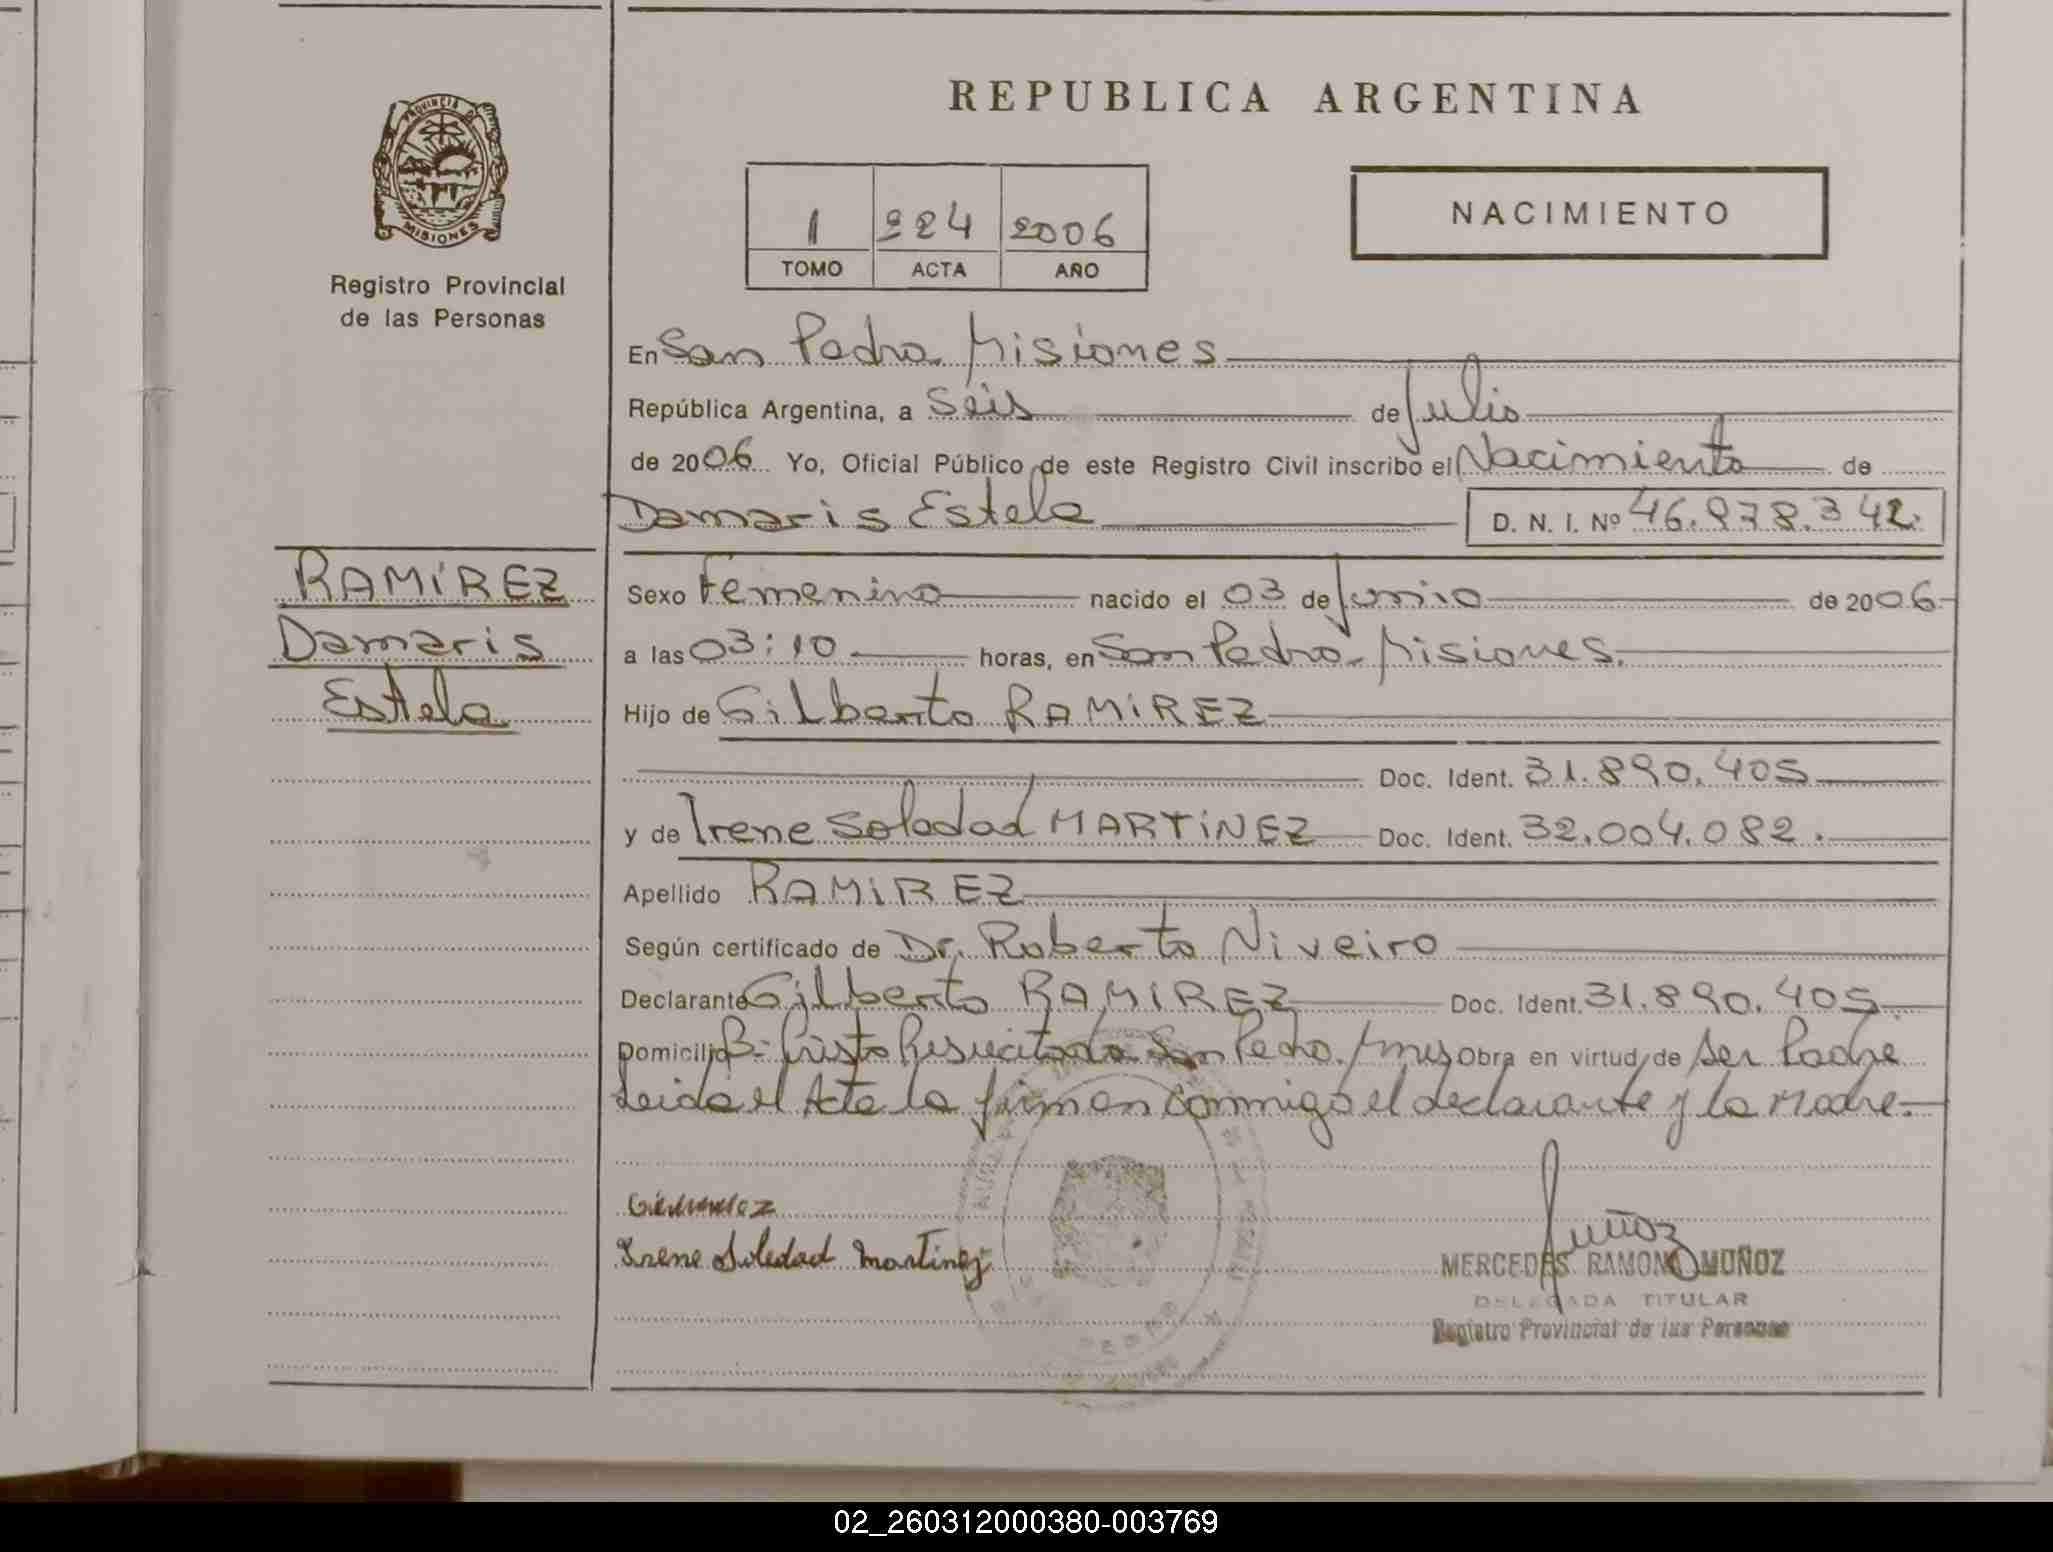 REPUBLICA ARGENTINA
PROVINCIA DE
MISIONES
Registro Provincial
de las Personas
1 224 2006
TOMO ACTA AÑO
NACIMIENTO
En San Pedro. Misiones
República Argentina, a Seis de Julio
de 2006 Yo, Oficial Público de este Registro Civil inscribo el Nacimiento de
Damaris Estela D. N. I. Nº 46.978.342.
RAMIREZ
Damaris
Estela
Sexo Femenino nacido el 03 de Junio de 2006
a las 03:10 horas, en San Pedro. Misiones.
Hijo de Gilberto RAMIREZ
Doc. Ident. 31.890.405
y de Irene Soledad MARTINEZ Doc. Ident. 32.004.082.
Apellido RAMIREZ
Según certificado de Dr. Roberto Niveiro
Declarante Gilberto RAMIREZ Doc. Ident. 31.890.405
Domicilio B- Cristo Resucitado San Pedro. Mnes Obra en virtud de ser Padre
Leida el Acta la firman conmigo el declarante y la Madre.
Irene Soledad Martinez
Muñoz
MERCEDES RAMONA MUÑOZ
DELEGADA TITULAR
Registro Provincial de las Personas
02_260312000380-003769